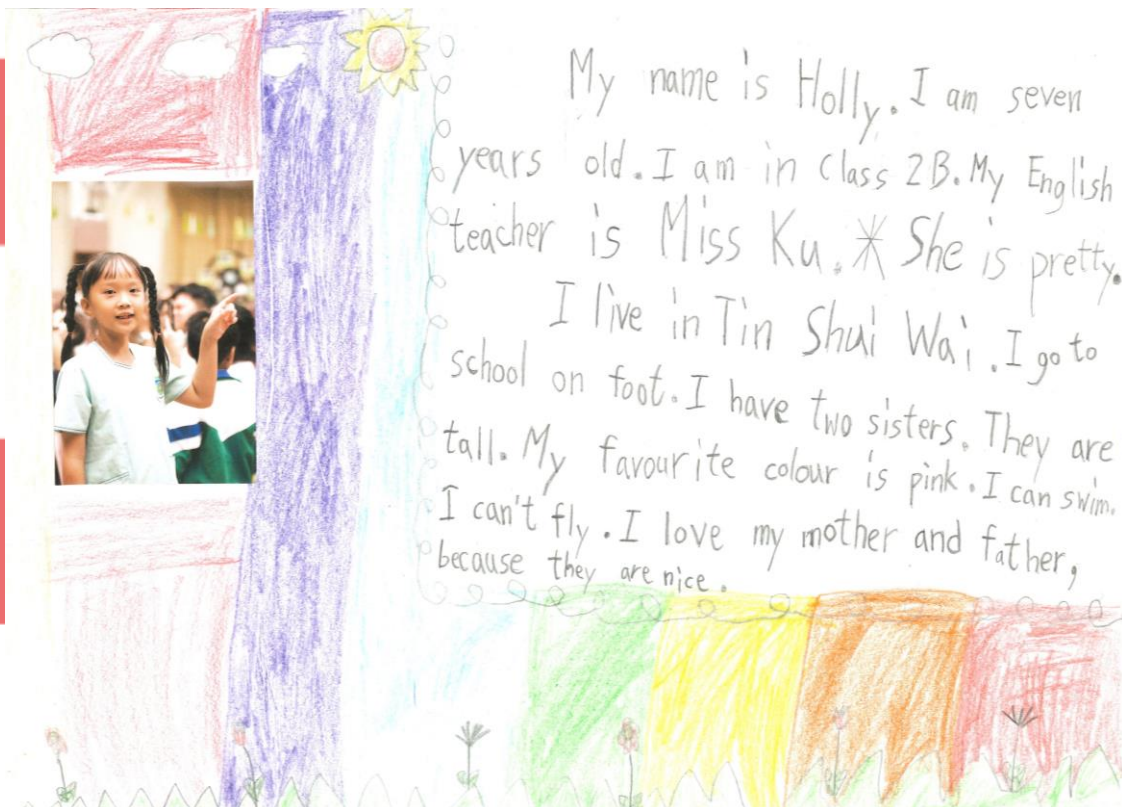 My name is Holly. I am seven
years old. I am in Class 2B. My English
teacher is Miss Ku. She is pretty.
I live in Tin Shui Wai. I go to
school on foot. I have two sisters. They are
tall. My favourite colour is pink. I can swim.
I can't fly. I love my mother and father,
because they are nice.